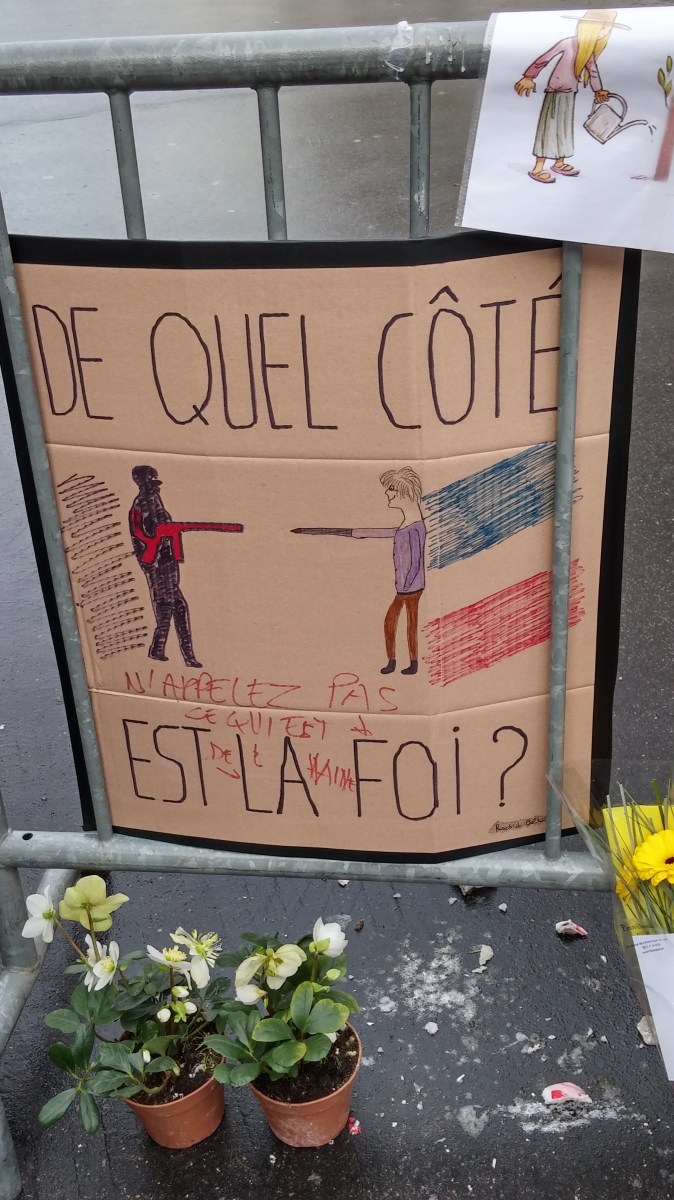 DE QUEL CÔTÉ
N'APPELEZ PAS
CE QUI EST
DE LA HAINE
EST LA FOI ?